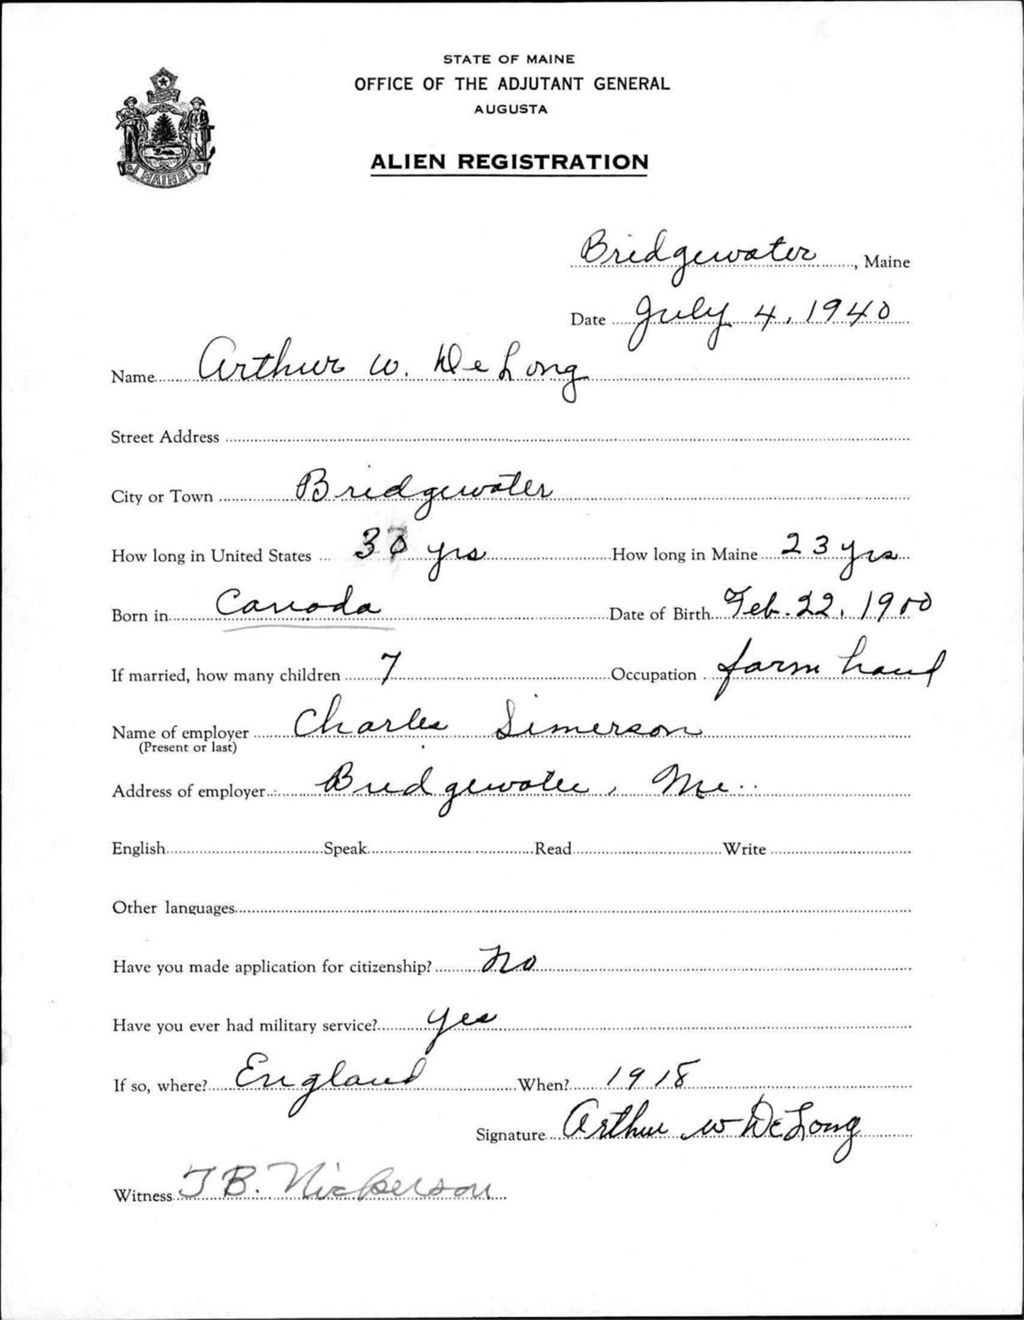 STATE OF MAINE
OFFICE OF THE ADJUTANT GENERAL
AUGUSTA
ALIEN REGISTRATION
MAINE
Bridgewater, Maine
Date July 4, 1940
Name Arthur W. DeLong
Street Address
City or Town Bridgewater
How long in United States 30 yrs How long in Maine 23 yrs
Born in Canada Date of Birth Feb. 22, 1900
If married, how many children 7 Occupation farm hand
Name of employer Charles Simerson
(Present or last)
Address of employer Bridgewater, Me.
English Speak Read Write
Other languages
Have you made application for citizenship? No
Have you ever had military service? Yes
If so, where? England When? 1918
Signature Arthur W DeLong
Witness J B. Nickerson